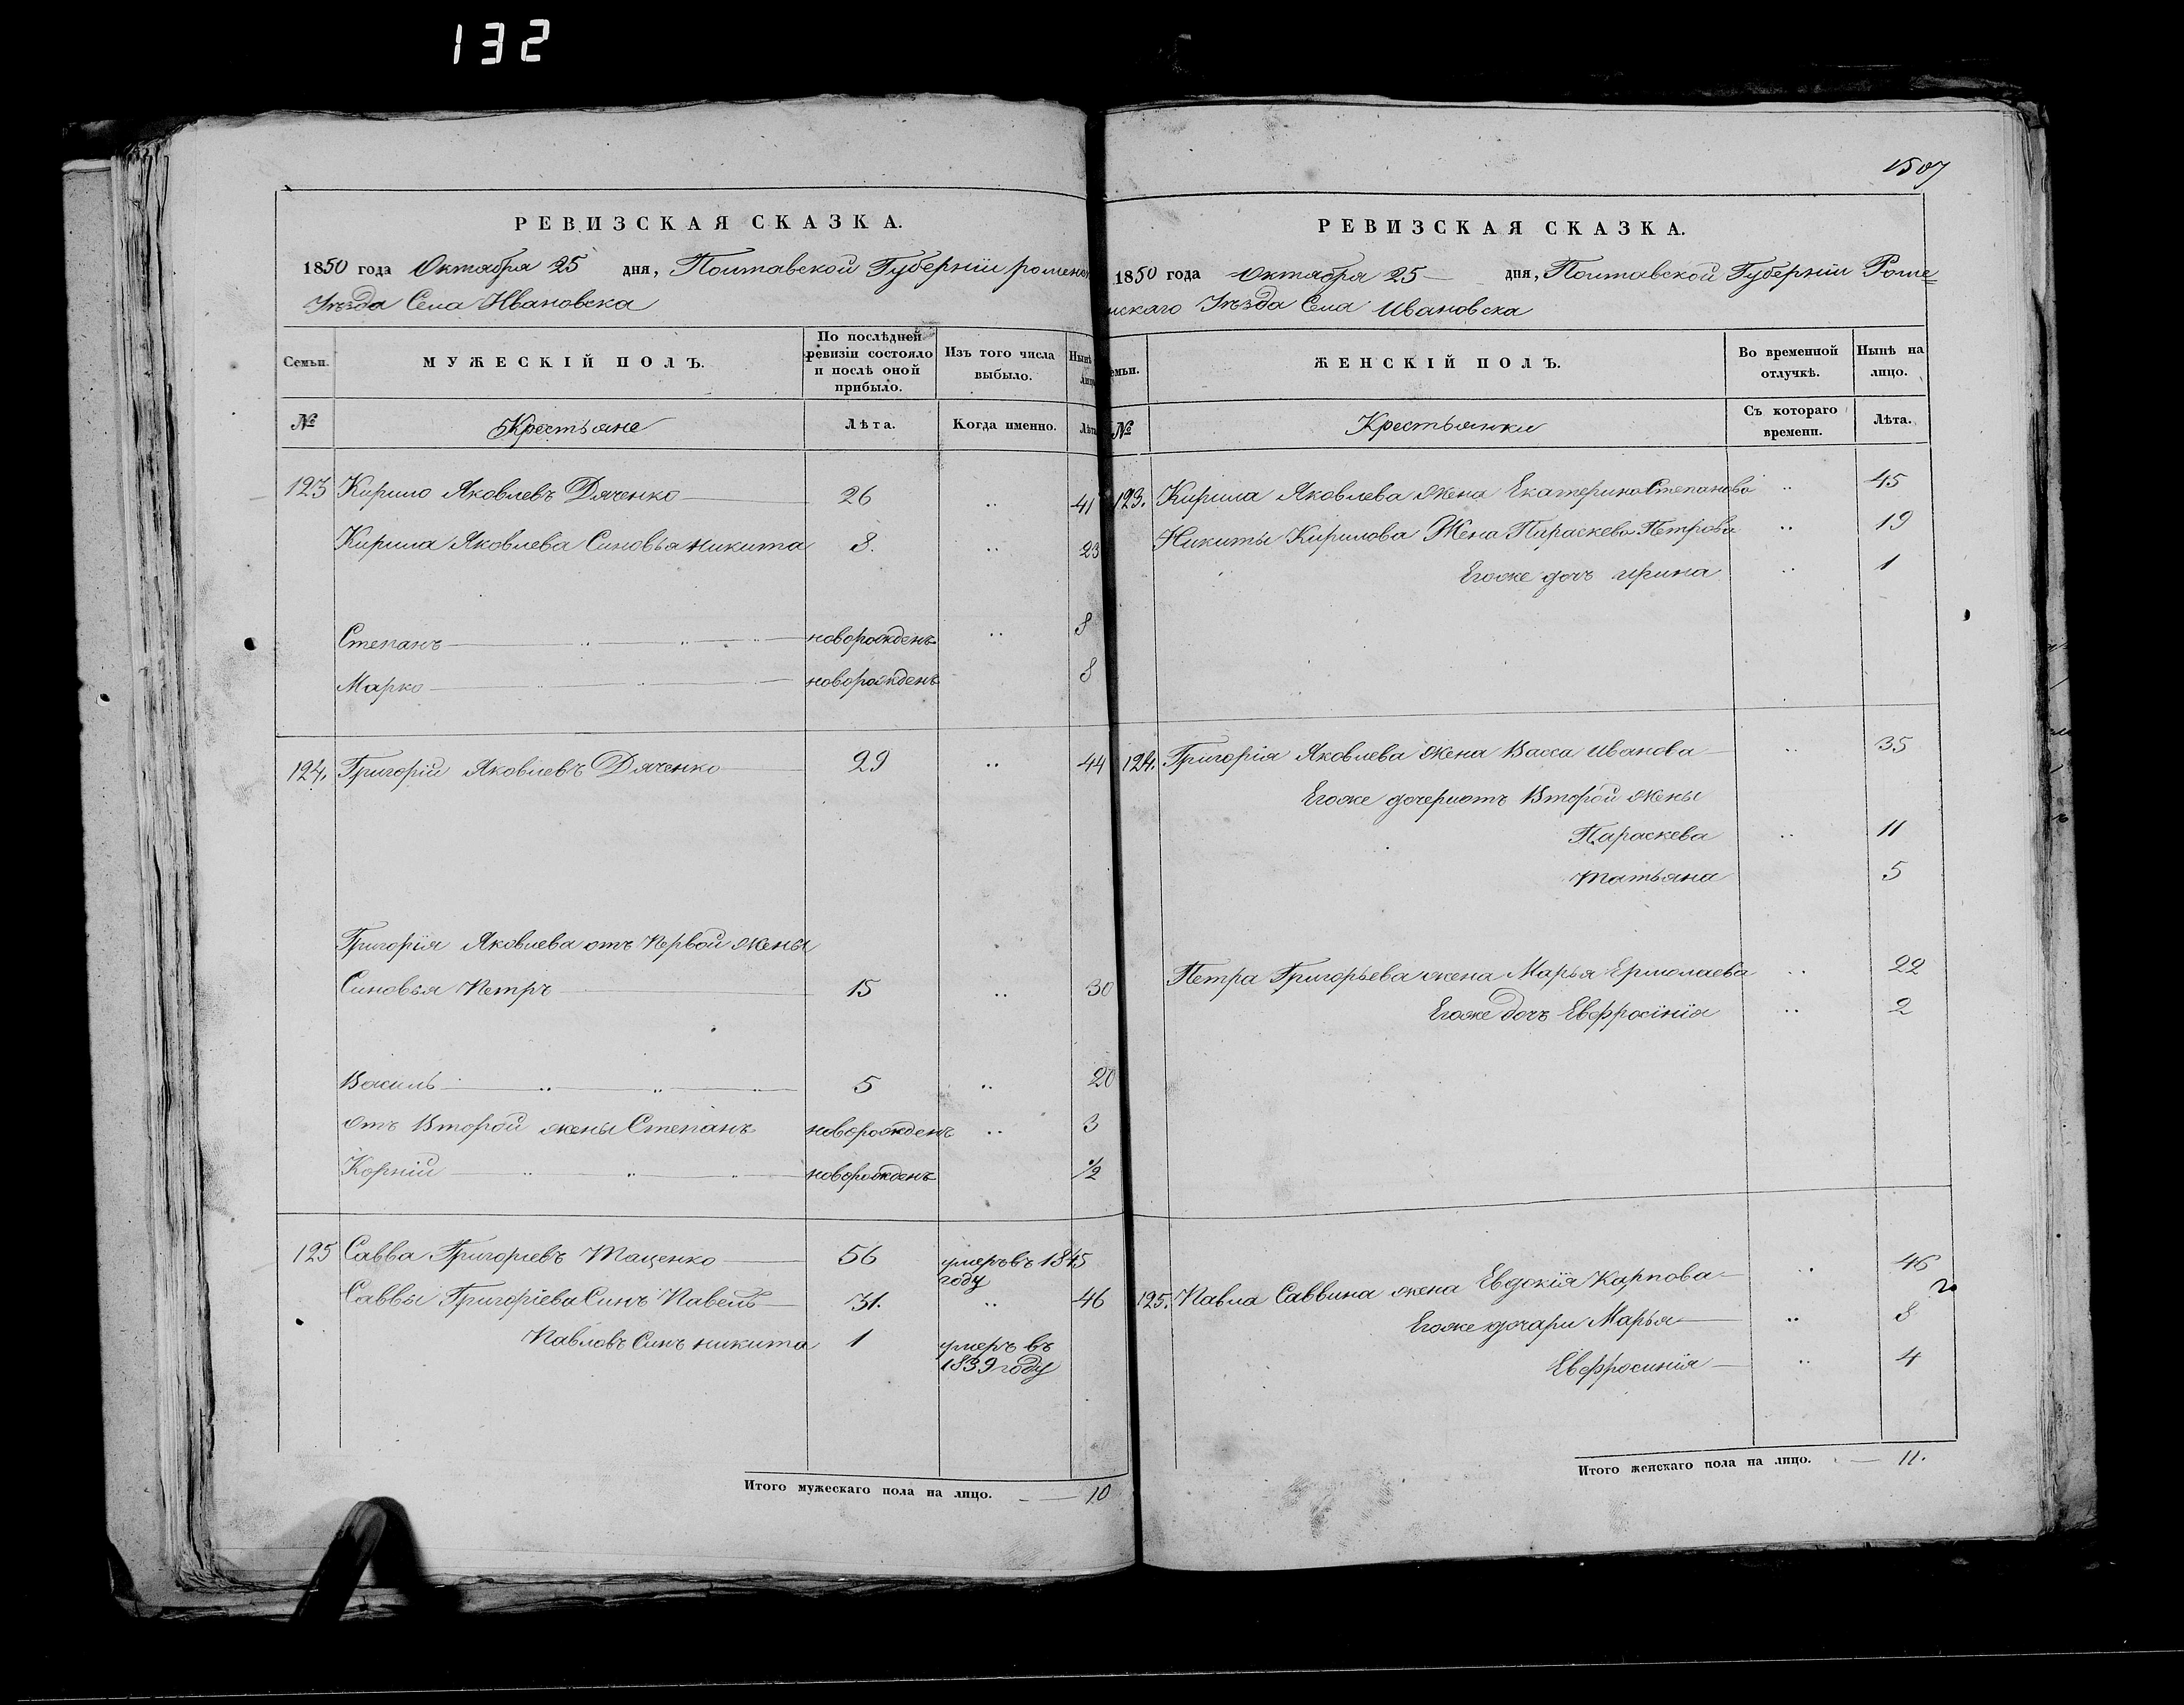 132
1507
РЕВИЗСКАЯ СКАЗКА.
1850 года Октября 25 дня, Полтавской Губерніи ромен
Уѣзда Села Ивановска
Семьи. МУЖЕСКІЙ ПОЛЪ. По послѣдней ревизіи состояло и послѣ оной прибыло. Изъ того числа выбыло. Нынѣ лицо
№ Крестьяне Лѣта. Когда именно. Лѣта
123 Кирило Яковлевъ Дяченко 26 .. 41
Кирила Яковлева Синовья никита 8. .. 23
Степанъ новорожденъ .. 8
Марко новорожденъ 8
124. Григорій Яковлевъ Дяченко 29 .. 44
Григорія Яковлева отъ Первой жены
Синовья Петръ 15 .. 30
Василь 5 .. 20
отъ Второй жены Степанъ новорожденъ .. 3
Корній новорожденъ 1/2
125 Савва Григоріевъ Тащенко 56 умеръ въ 1845
году
Саввы Григоріева Синъ Павелъ 31. .. 46
Павловъ Синъ никита 1 умеръ въ
1839 году
Итого мужескаго пола на лицо. 10
РЕВИЗСКАЯ СКАЗКА.
1850 года Октября 25 дня, Полтавской Губерніи Роме=
нскаго Уѣзда Села Ивановска
емьи. ЖЕНСКІЙ ПОЛЪ. Во временной отлучкѣ. Нынѣ на лицо.
№ Крестьянки Съ котораго времени. Лѣта.
123. Кирила Яковлева жена Екатерина Степанова .. 45
Никиты Кирилова Жена Параскева Петрова .. 19
Егоже дочь ирина .. 1
124. Григорія Яковлева жена Васса иванова .. 35
Егоже дочери отъ Второй жены
Параскева .. 11
татьяна 5
Петра Григорьева жена Марья Ермолаева .. 22
Егоже дочь Евфросінія .. 2
125. Павла Саввина жена Евдокія Карпова .. 46
Егоже дочари Марья .. 8
Евфросинія .. 4
Итого женскаго пола на лицо. 11.